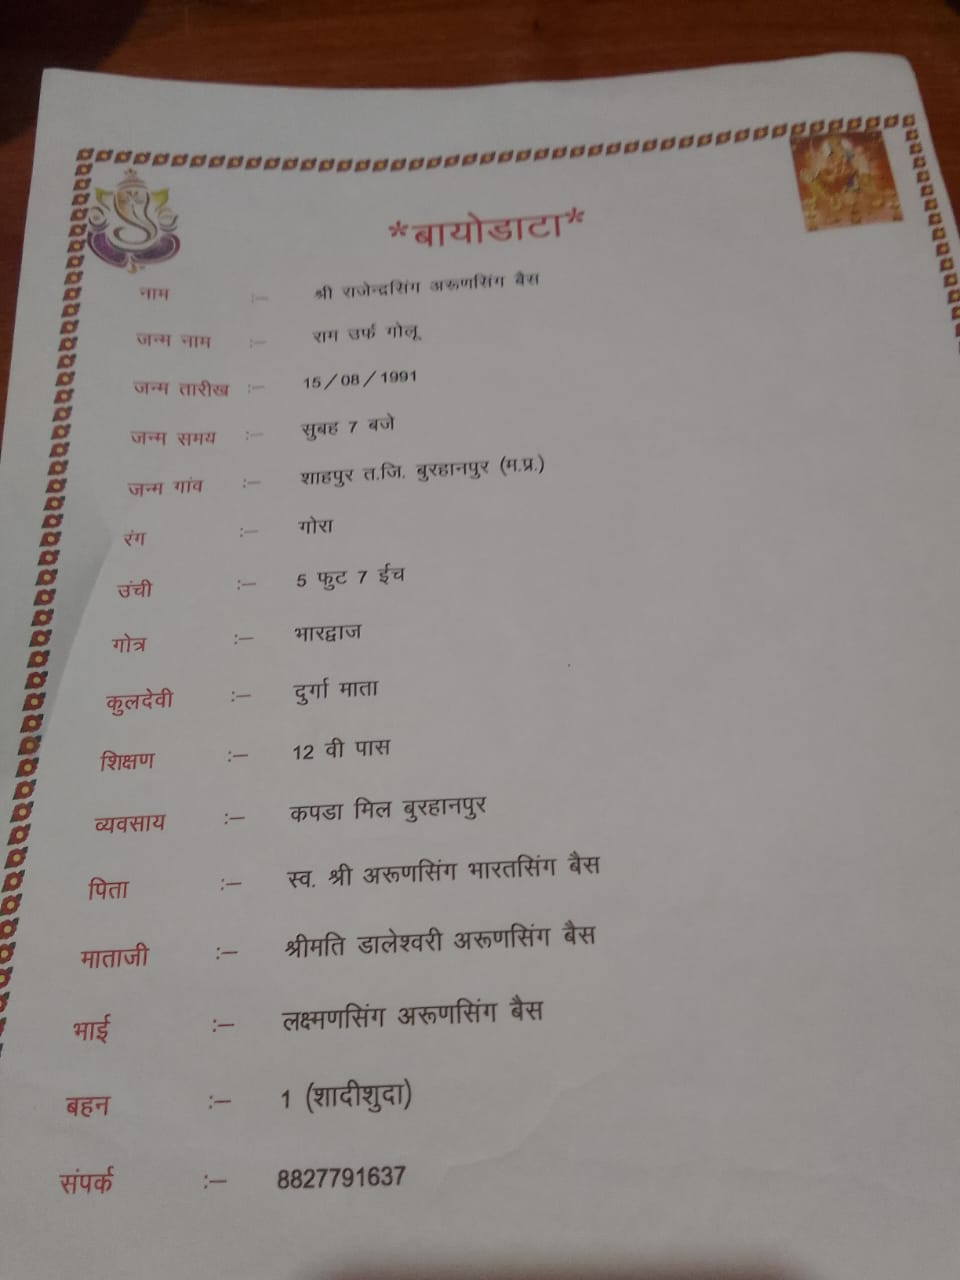 *बायोडाटा*
नाम :— श्री राजेन्द्रसिंग अरूणसिंग बैस
जन्म नाम :— राम उर्फ गोलू
जन्म तारीख :— 15/08/1991
जन्म समय :— सुबह 7 बजे
जन्म गांव :— शाहपुर त.जि. बुरहानपुर (म.प्र.)
रंग :— गोरा
उंची :— 5 फुट 7 ईंच
गोत्र :— भारद्वाज
कुलदेवी :— दुर्गा माता
शिक्षण :— 12 वी पास
व्यवसाय :— कपडा मिल बुरहानपुर
पिता :— स्व. श्री अरूणसिंग भारतसिंग बैस
माताजी :— श्रीमति डालेश्वरी अरूणसिंग बैस
भाई :— लक्ष्मणसिंग अरूणसिंग बैस
बहन :— 1 (शादीशुदा)
संपर्क :— 8827791637